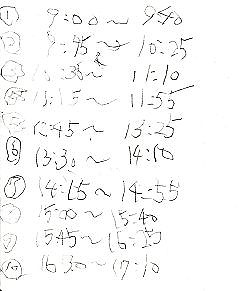 ① 9:00～ 9:40
② 9:45～ 10:25
10:30～ 11:10
11:15～ 11:55
12:45～ 13:25
⑥ 13:30～ 14:10
14:15～ 14:55
15:00～ 15:40
15:45～
⑩ 16:30～ 17:10